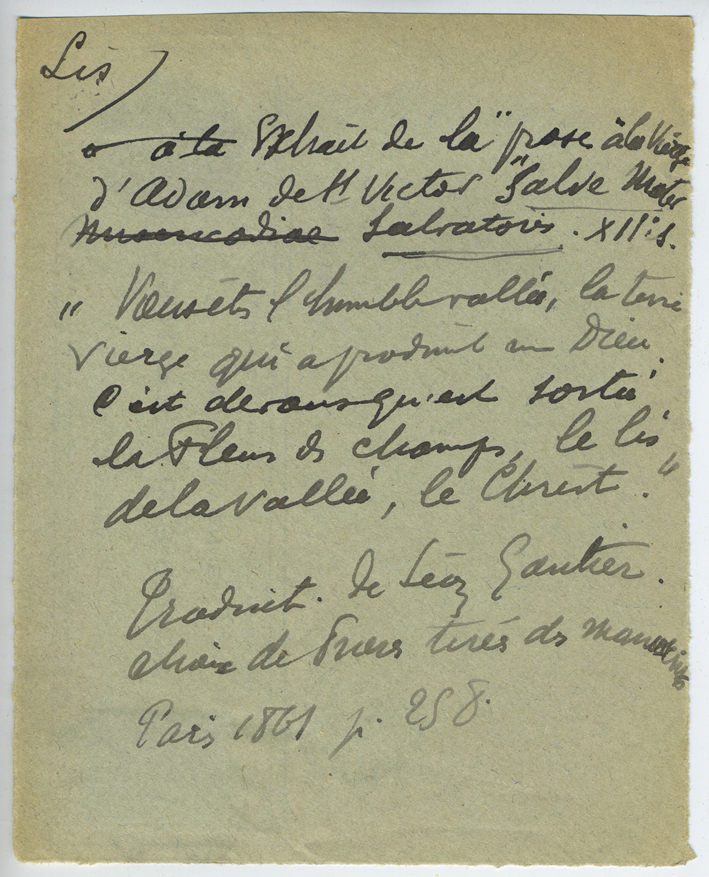 Lis)
à la Extrait de la "prose à la Vierge
d'Adam de St Victor "Salve Mater
Misericordiae Salvatoris. XIIe s.
" Vous êts l'humble vallée, la terre
vierge qui a produit un Dieu.
C'est de vous qu'est sortie
la Fleur ds champs, le lis
de la vallée, le Christ."
Traduct. de Léon Gautier.
choix de Prières tirés ds manuscrits
Paris 1861 p. 258.